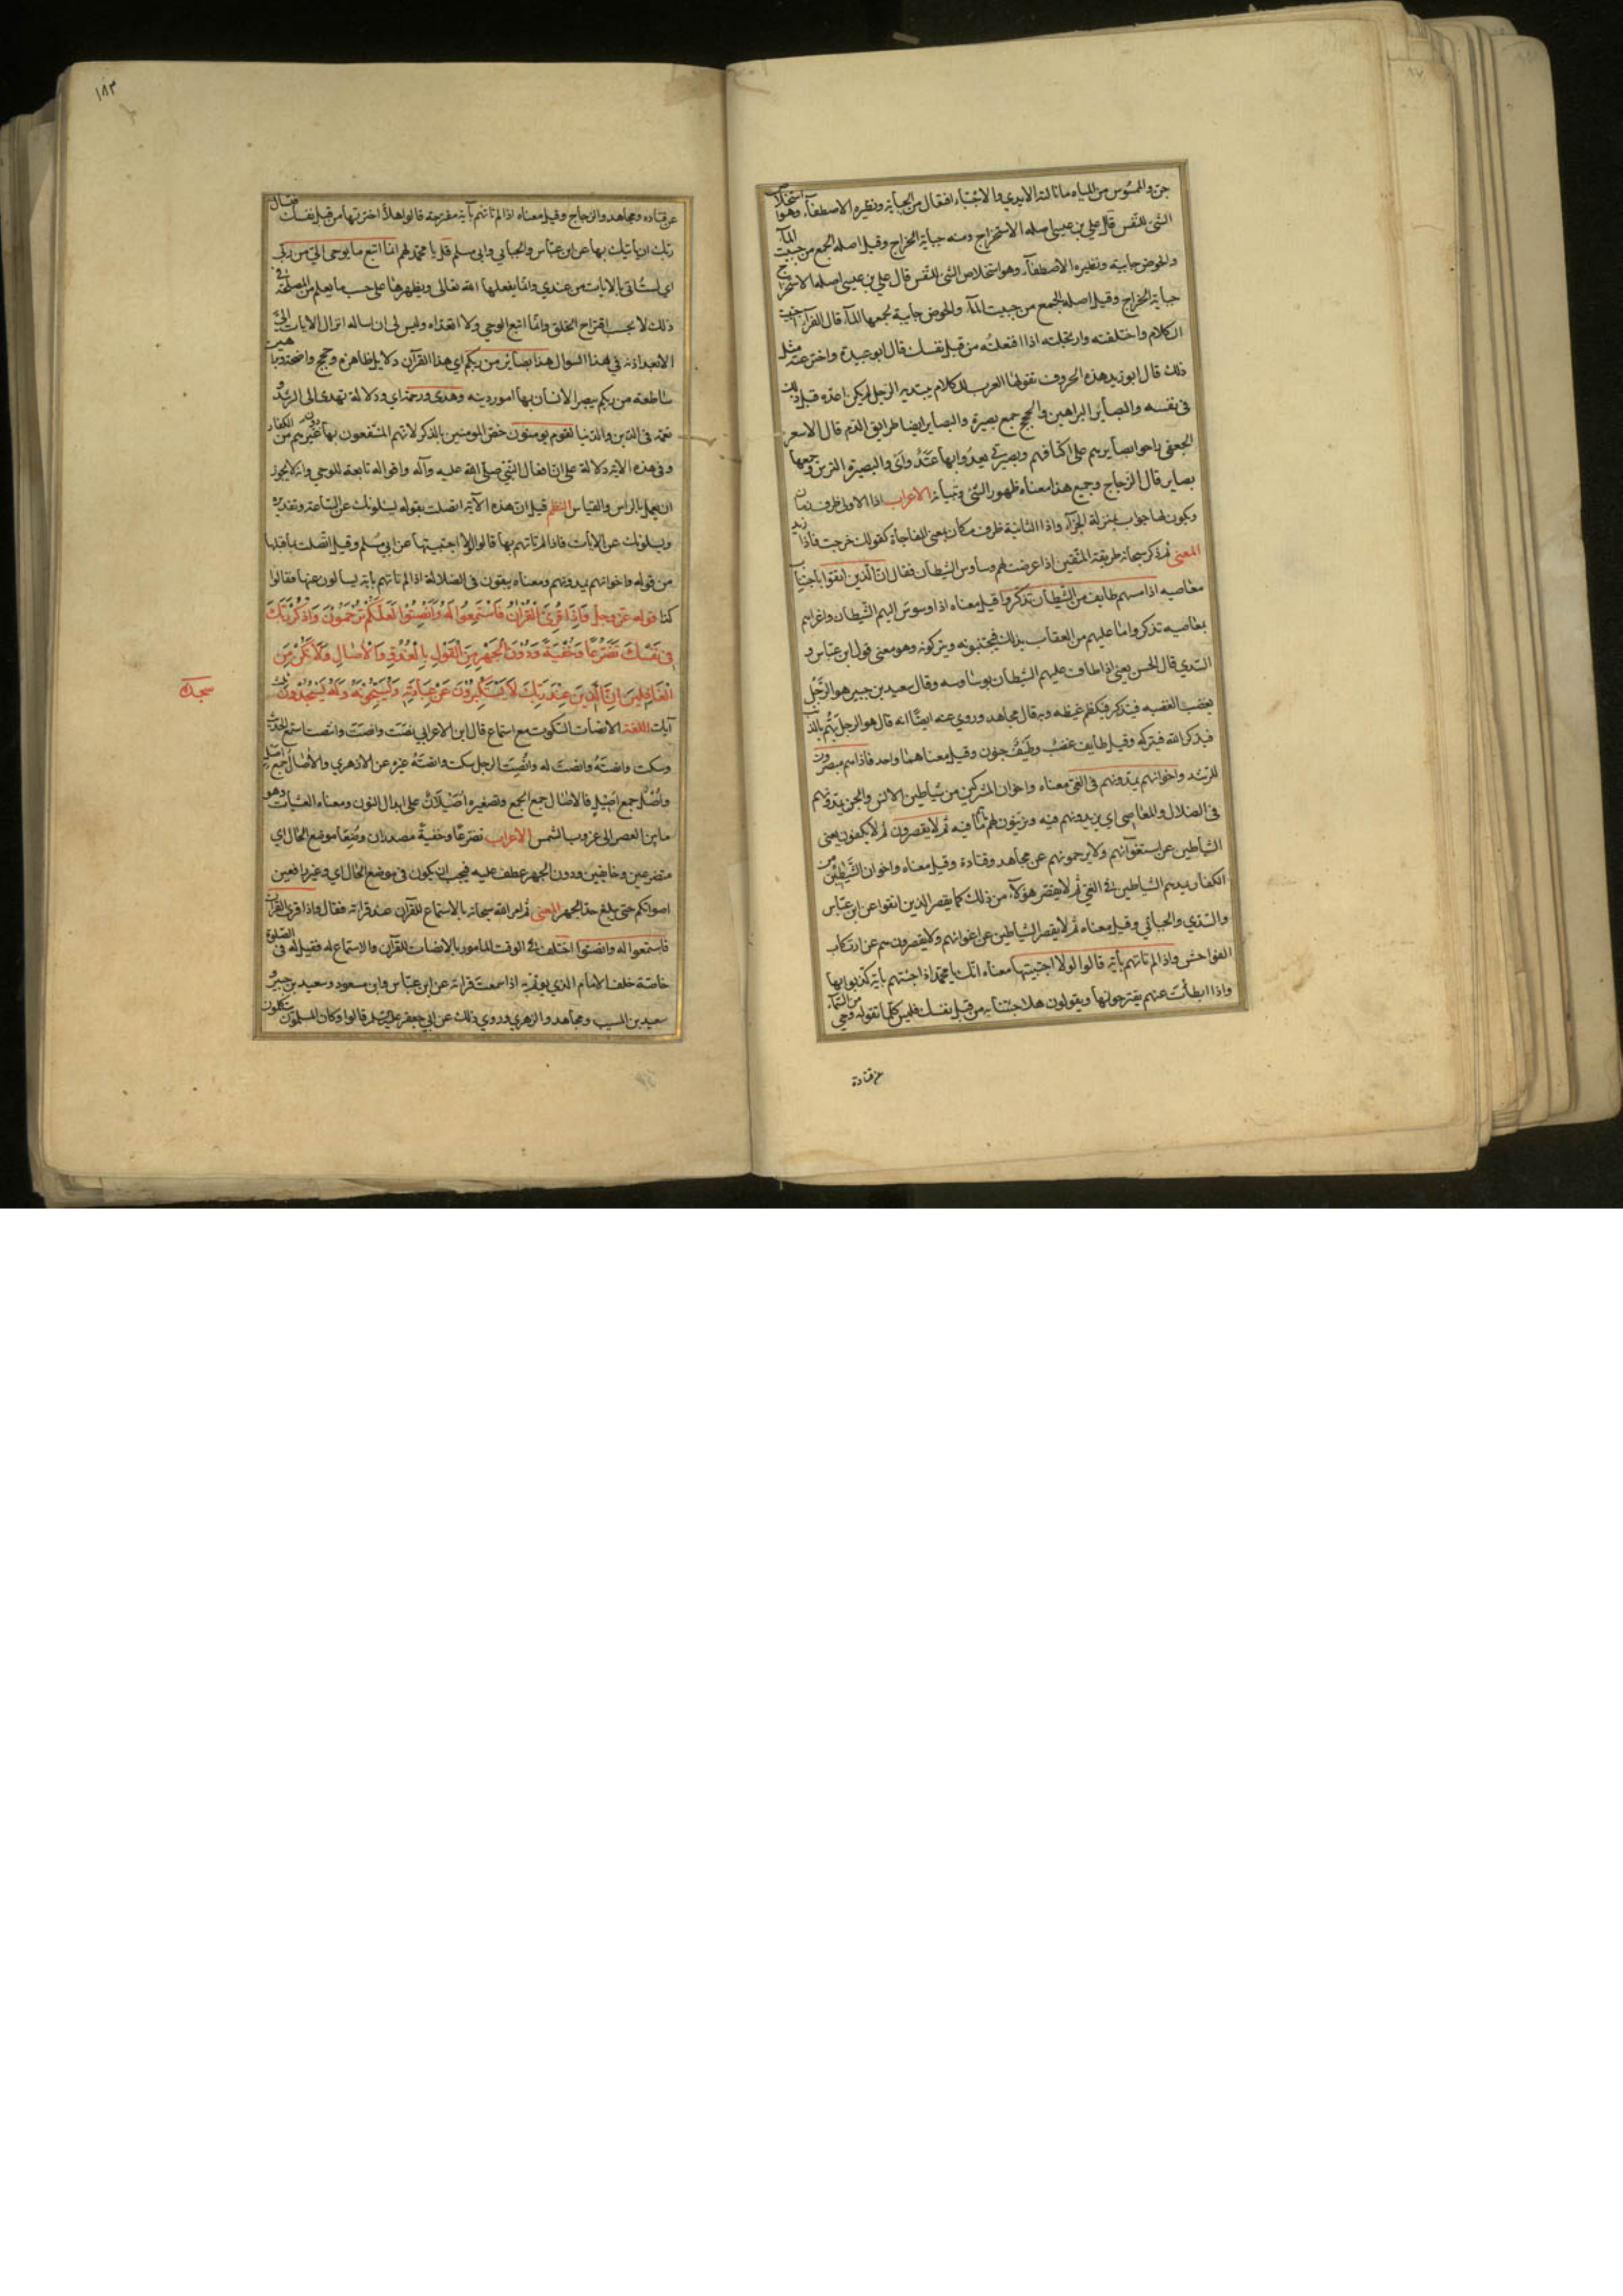 جن والممسوس من المياه ما نالته الايدي والاجتباء افتعال من الجباية ونظيره الاصطفآء وهو استخلاص
الشئ للنفس قال علي بن عيسى اصله الاستخراج ومنه جباية الخراج وقيل اصله الجمع من جبيت المآء
والحوض جابية ونظيره الاصطفآء وهو استخلاص الشئ للنفس قال علي بن عيسى اصله الاستخراج
جباية الخراج وقيل اصله الجمع من جبيت المآء والحوض جابية لجمعها المآء قال الفرآء اجتبيت
الكلام واختلقته وارتجلته اذا افتعلته من قبل نفسك قال ابو عبيدة واخترعته مثل
ذلك قال ابو زيد هذه الحروف تقولها العرب للكلام يبتديه الرجل لم يكن اعده قبل ذلك
في نفسه والبصاير البراهين والحجج جمع بصيرة والبصاير ايضا طرايق الدم قال الاسعر
الجعفي راحوا بصايرهم على اكتافهم وبصيرتي يعدوا بها عتد وأى والبصيرة الترس وجمعها
بصاير قال الزجاج وجميع هذا معناه ظهور الشئ وتبيانه الاعراب اذا الاولى ظرف زمان
ويكون لها جواب بمنزلة الجزآء واذا الثانية ظرف مكان بمعنى المفاجأة كقولك خرجت فاذا زيد
المعنى ثم ذكر سبحانه طريقة المتقين اذا عرضت لهم وساوس الشيطان فقال ان الذين اتقوا باجتناب
معاصيه اذا مسهم طايف من الشيطان تذكروا قيل معناه اذا وسوس اليهم الشيطان واغراهم
بمعاصيه تذكروا ما عليهم من العقاب بذلك فيجتنبونه ويتركونه وهو معنى قول ابن عباس و
السدي قال الحسن يعني اذا طاف عليهم الشيطان بوساوسه وقال سعيد بن جبير هو الرجل
يغضب الغضبة فيتذكر فيكظم غيظه وبه قال مجاهد وروي عنه ايضا انه قال هو الرجل يهم بالذنب
فيذكر الله فيتركه وقيل طايف غضب وطيف جنون وقيل معناهما واحد فاذا هم مبصرون
للرشد واخوانهم يمدونهم في الغي معناه واخوان المشركين من شياطين الانس والجن يمدونهم
في الضلال والمعاصي اي يزيدونهم فيه ويزينون لهم ما هم فيه ثم لا يقصرون ثم لا يكفون يعني
الشياطين عن استغوائهم ولا يرحمونهم عن مجاهد وقتادة وقيل معناه واخوان الشياطين من
الكفار يمدهم الشياطين في الغي ثم لا يقصر هؤلآء من ذلك كما يقصر الذين اتقوا عن ابن عباس
والسدي والجبائي وقيل معناه ثم لا يقصر الشياطين عن اغوائهم ولا يقصرون هم عن ارتكاب
الفواحش واذا لم تاتهم بآية قالوا لولا اجتبيتها معناه انك يا محمد اذا جئتهم بآية كذبوا بها
واذا ابطأت عنهم يقترحونها ويقولون هلا جئتنا به من قبل نفسك فليس كلما تقوله وحي من السماء
عن قتادة
١٨٣
عن قتاده ومجاهد والزجاج وقيل معناه اذا لم تاتهم بآية مقترحة قالوا هلا اخترتها من قبل نفسك فتسال
ربك ان ياتيك بها عن ابن عباس والجبائي وابي مسلم قل يا محمد لهم انما اتبع ما يوحى الي من ربي
اي لست آتي بالايات من عندي وانما يفعلها الله تعالى ويظهرها على حسب ما يعلم من المصلحة في
ذلك لا بحسب اقتراح الخلق وانما اتبع الوحي ولا اتعداه وليس لي ان اساله انزال الايات
الا بعد اذنه في هذا السوال هذا بصائر من ربكم اي هذا القرآن دلايل ظاهرة وحجج واضحة وبراهين
ساطعة من ربكم يبصر الانسان بها امور دينه وهدى ورحمة اي ودلالة تهدى الى الرشد و
نعمة في الدين والدنيا لقوم يومنون خص المومنين بالذكر لانهم المنتفعون بها دون غيرهم من الكفار
وفي هذه الاية دلالة على ان افعال النبي صلى الله عليه وآله واقواله تابعة للوحي وانه لا يجوز
ان يعمل بالراس والقياس النظم قيل ان هذه الآية اتصلت بقوله يسئلونك عن الساعة وتقديره
ويسلونك عن الايات فاذا لم تاتهم بها قالوا لولا اجتبيتها عن ابي مسلم وقيل اتصلت بما قبلها
من قوله واخوانهم يمدونهم ومعناه يبقون في الضلالة اذا لم تاتهم باية يسالون عنها فقالوا
كذا قوله عز وجل فَاِذَا قُرِئَ الْقُرْانُ فَاسْتَمِعُوا لَهُ وَاَنْصِتُوا لَعَلَّكُمْ تُرْحَمُونَ وَاذْكُرْ رَبَّكَ
فِي نَفْسِكَ تَضَرُّعًا وَخُفْيَةً وَدُونَ الْجَهْرِ مِنَ الْقَوْلِ بِالْغُدُوِّ وَالْاصَالِ وَلَا تَكُنْ مِنَ
الْغَافِلِينَ اِنَّ الَّذِينَ عِنْدَ رَبِّكَ لَا يَسْتَكْبِرُونَ عَنْ عِبَادَتِهِ وَيُسَبِّحُونَهُ وَلَهُ يَسْجُدُونَ ثلث
سجدة
آيات اللغة الانصات السكوت مع استماع قال ابن الاعرابي نصت وانصت وانتصت استمع الحديث
وسكت وانصته وانصت له وانصت الرجل سكت وانصته غيره عن الازهري والآصال جمع اصل
واصل جمع اصيل فالآصال جمع الجمع وتصغيره اصيلان على ابدال النون ومعناه العشيات وهو
ما بين العصر الى غروب الشمس الاعراب تضرعا وخفية مصدران وضعا موضع الحال اي
متضرعين وخايفين ودون الجهر عطف عليه فيجب ان يكون في موضع الحال اي وغير رافعين
اصواتكم حتى يبلغ حد الجهر المعنى ثم امر الله سبحانه بالاستماع للقرآن عند قراءته فقال واذا قرئ القرآن
فاستمعوا له وانصتوا اختلف في الوقت المامور بالانصات للقرآن والاستماع له فقيل له في الصلوة
خاصة خلف الامام الذي يوتم به اذا سمعت قراءته عن ابن عباس وابن مسعود وسعيد بن جبير و
سعيد بن المسيب ومجاهد والزهري وروي ذلك عن ابي جعفر قالوا وكان المسلمون يتكلمون